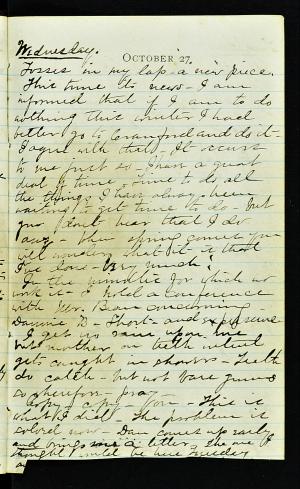 Wednesday.
OCTOBER 27.
Tosses in my lap a new piece.
This time its news - I am
informed that if I am to do
nothing this winter I had
better go to Cranford and do it.
I agree with that - It occurs
to me just so - I have a great
deal of time - time to do all
the things I have always been
waiting to get time to do - But
you don't hear that I do
any - When spring comes you
will wonder what it is that
I've done - Very much!
In the meantime for which we
work it - I hold a conference
with Mr. Burr concerning
Dammie D - Short - and
to get no rain upon me
but mother in teeth
gets caught in showers - Teeth
do catch - but not bare gums
so therefore -
Copy - copy - Now - This is
what I did - The problem is
solved now - Dan comes up early
and brings me a letter - She and I
thought I would be here Tuesday